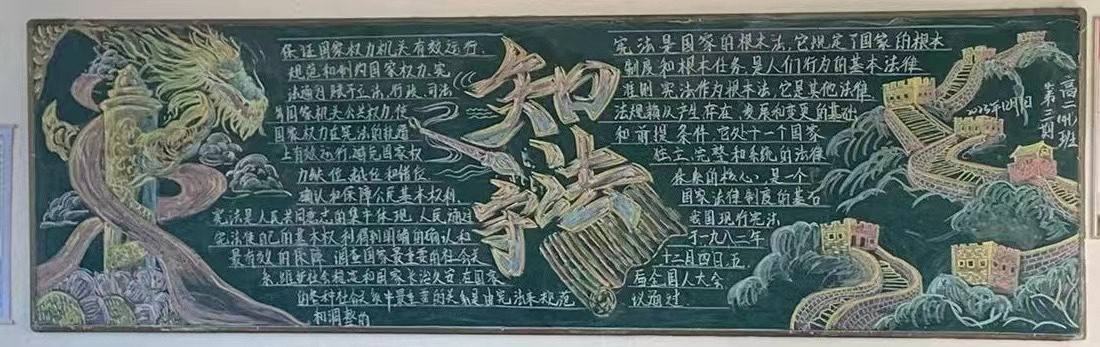 保证国家权力机关有效运行.
规范和制约国家权力,宪
法通过限制立法,行政,司法
等国家机关公共权力,使
国家权力在宪法的轨道
上有效运行,避免国家权
力缺位,越位和错位
确认和保障公民基本权利
宪法是人民共同意志的集中体现,人民通过
宪法使自己的基本权利得到明确的确认和
最有效的保障 调整国家最重要的社会关
系,维护社会稳定和国家长治久安,在国家
的各种社会关系中最重要的关系是由宪法来规范
和调整的
知法
守法
宪法是国家的根本法,它规定了国家的根本
制度和根本任务,是人们行为的基本法律
准则 宪法作为根本法,它是其他法律
法规赖以产生存在,发展和变更的基础
和前提条件,它处于一个国家
独立,完整和系统的法律
体系的核心,是一个
国家法律制度的基石
我国现行宪法
于一九八二年
十二月四日,五
届全国人大会
议通过
第三期